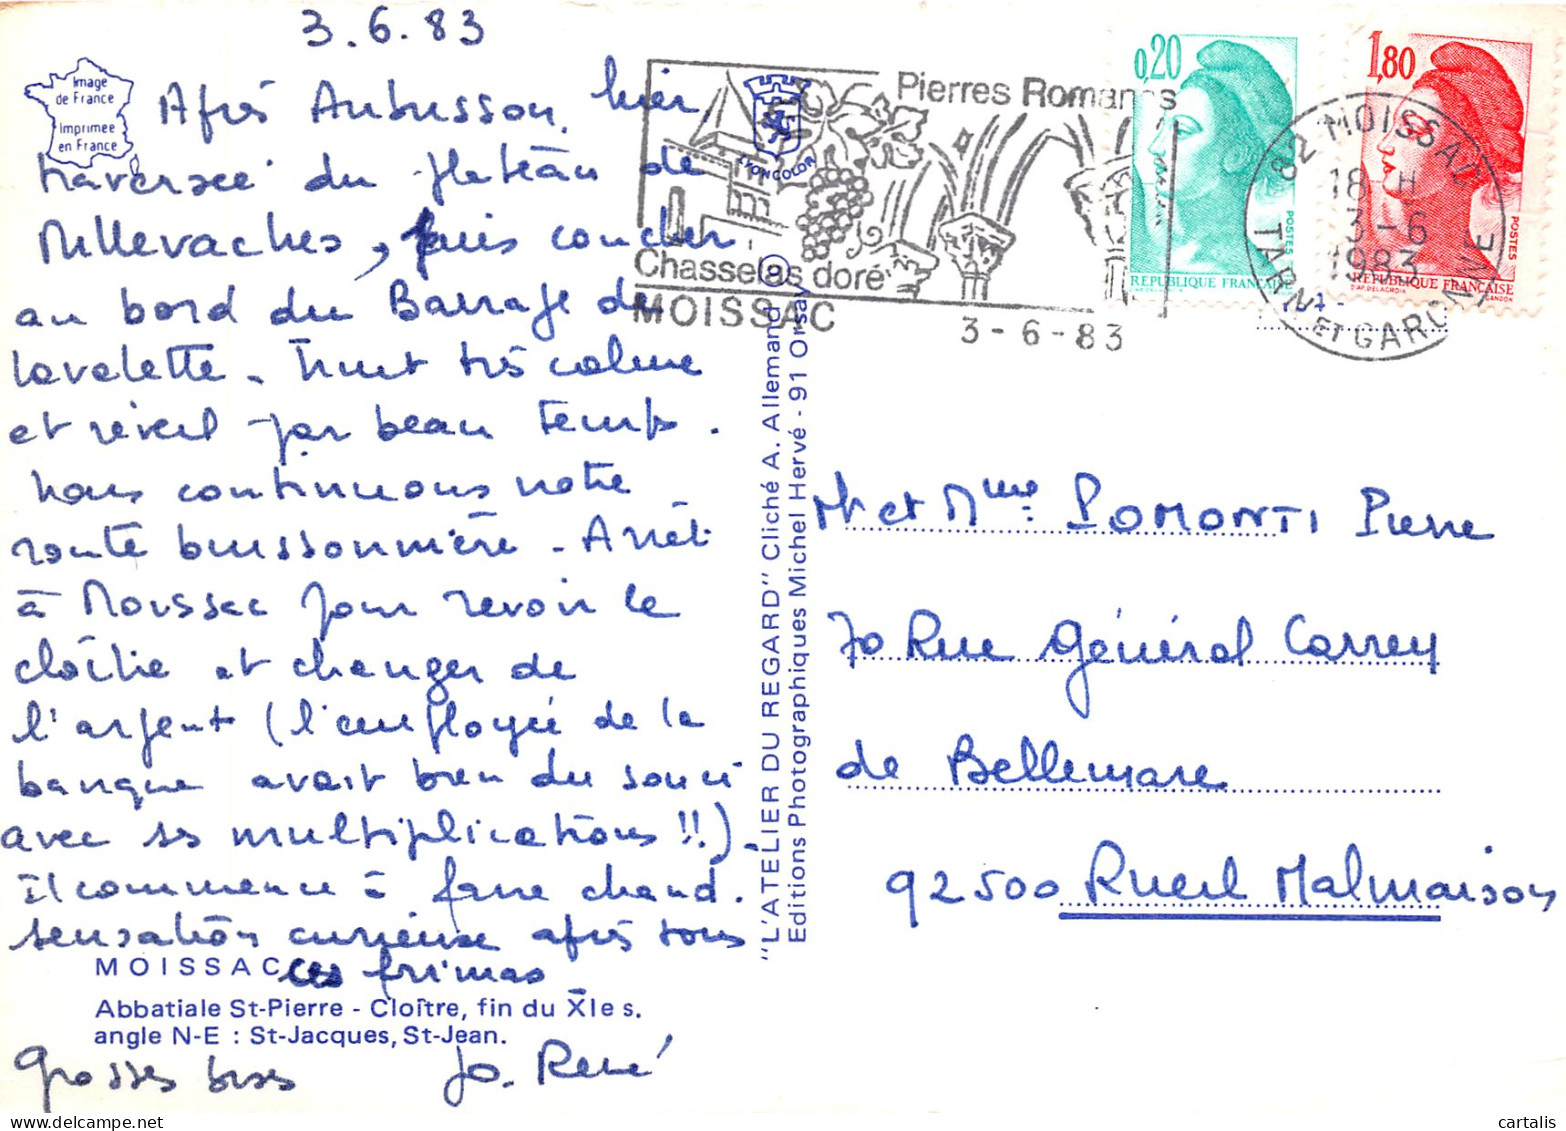 3.6.83
Image
de France
Imprimée
en France
Après Aubusson, hier
traversée du plateau de
Millevaches, puis coucher
au bord du Barrage de
Lavalette. Nuit très calme
et réveil par beau temps.
Nous continuons notre
route buissonnière. Arrêt
à Moissac pour revoir le
cloître et changer de
l'argent (l'employée de la
banque avait bien du souci
avec ses multiplications !!).
Il commence à faire chaud.
sensation curieuse après tous
ces frimas
MOISSAC
Abbatiale St-Pierre - Cloître, fin du XIe s.
angle N-E : St-Jacques, St-Jean.
Grosses bises Jo. René
"L'ATELIER DU REGARD" Cliché A. Allemand
Editions Photographiques Michel Hervé - 91 Orsay ©
LYONCOLOR
Pierres Romanes
Chasselas doré
MOISSAC
3-6-83
0,20
REPUBLIQUE FRANÇAISE
POSTES
1,80
REPUBLIQUE FRANÇAISE
D'AP. DELACROIX GANDON
POSTES
82 MOISSAC
18 H
3-6
1983
TARN ET GARONNE
Mr et Mme POMONTI Pierre
70 Rue Général Carrey
de Bellemare
92500 Rueil Malmaison
© cartalis